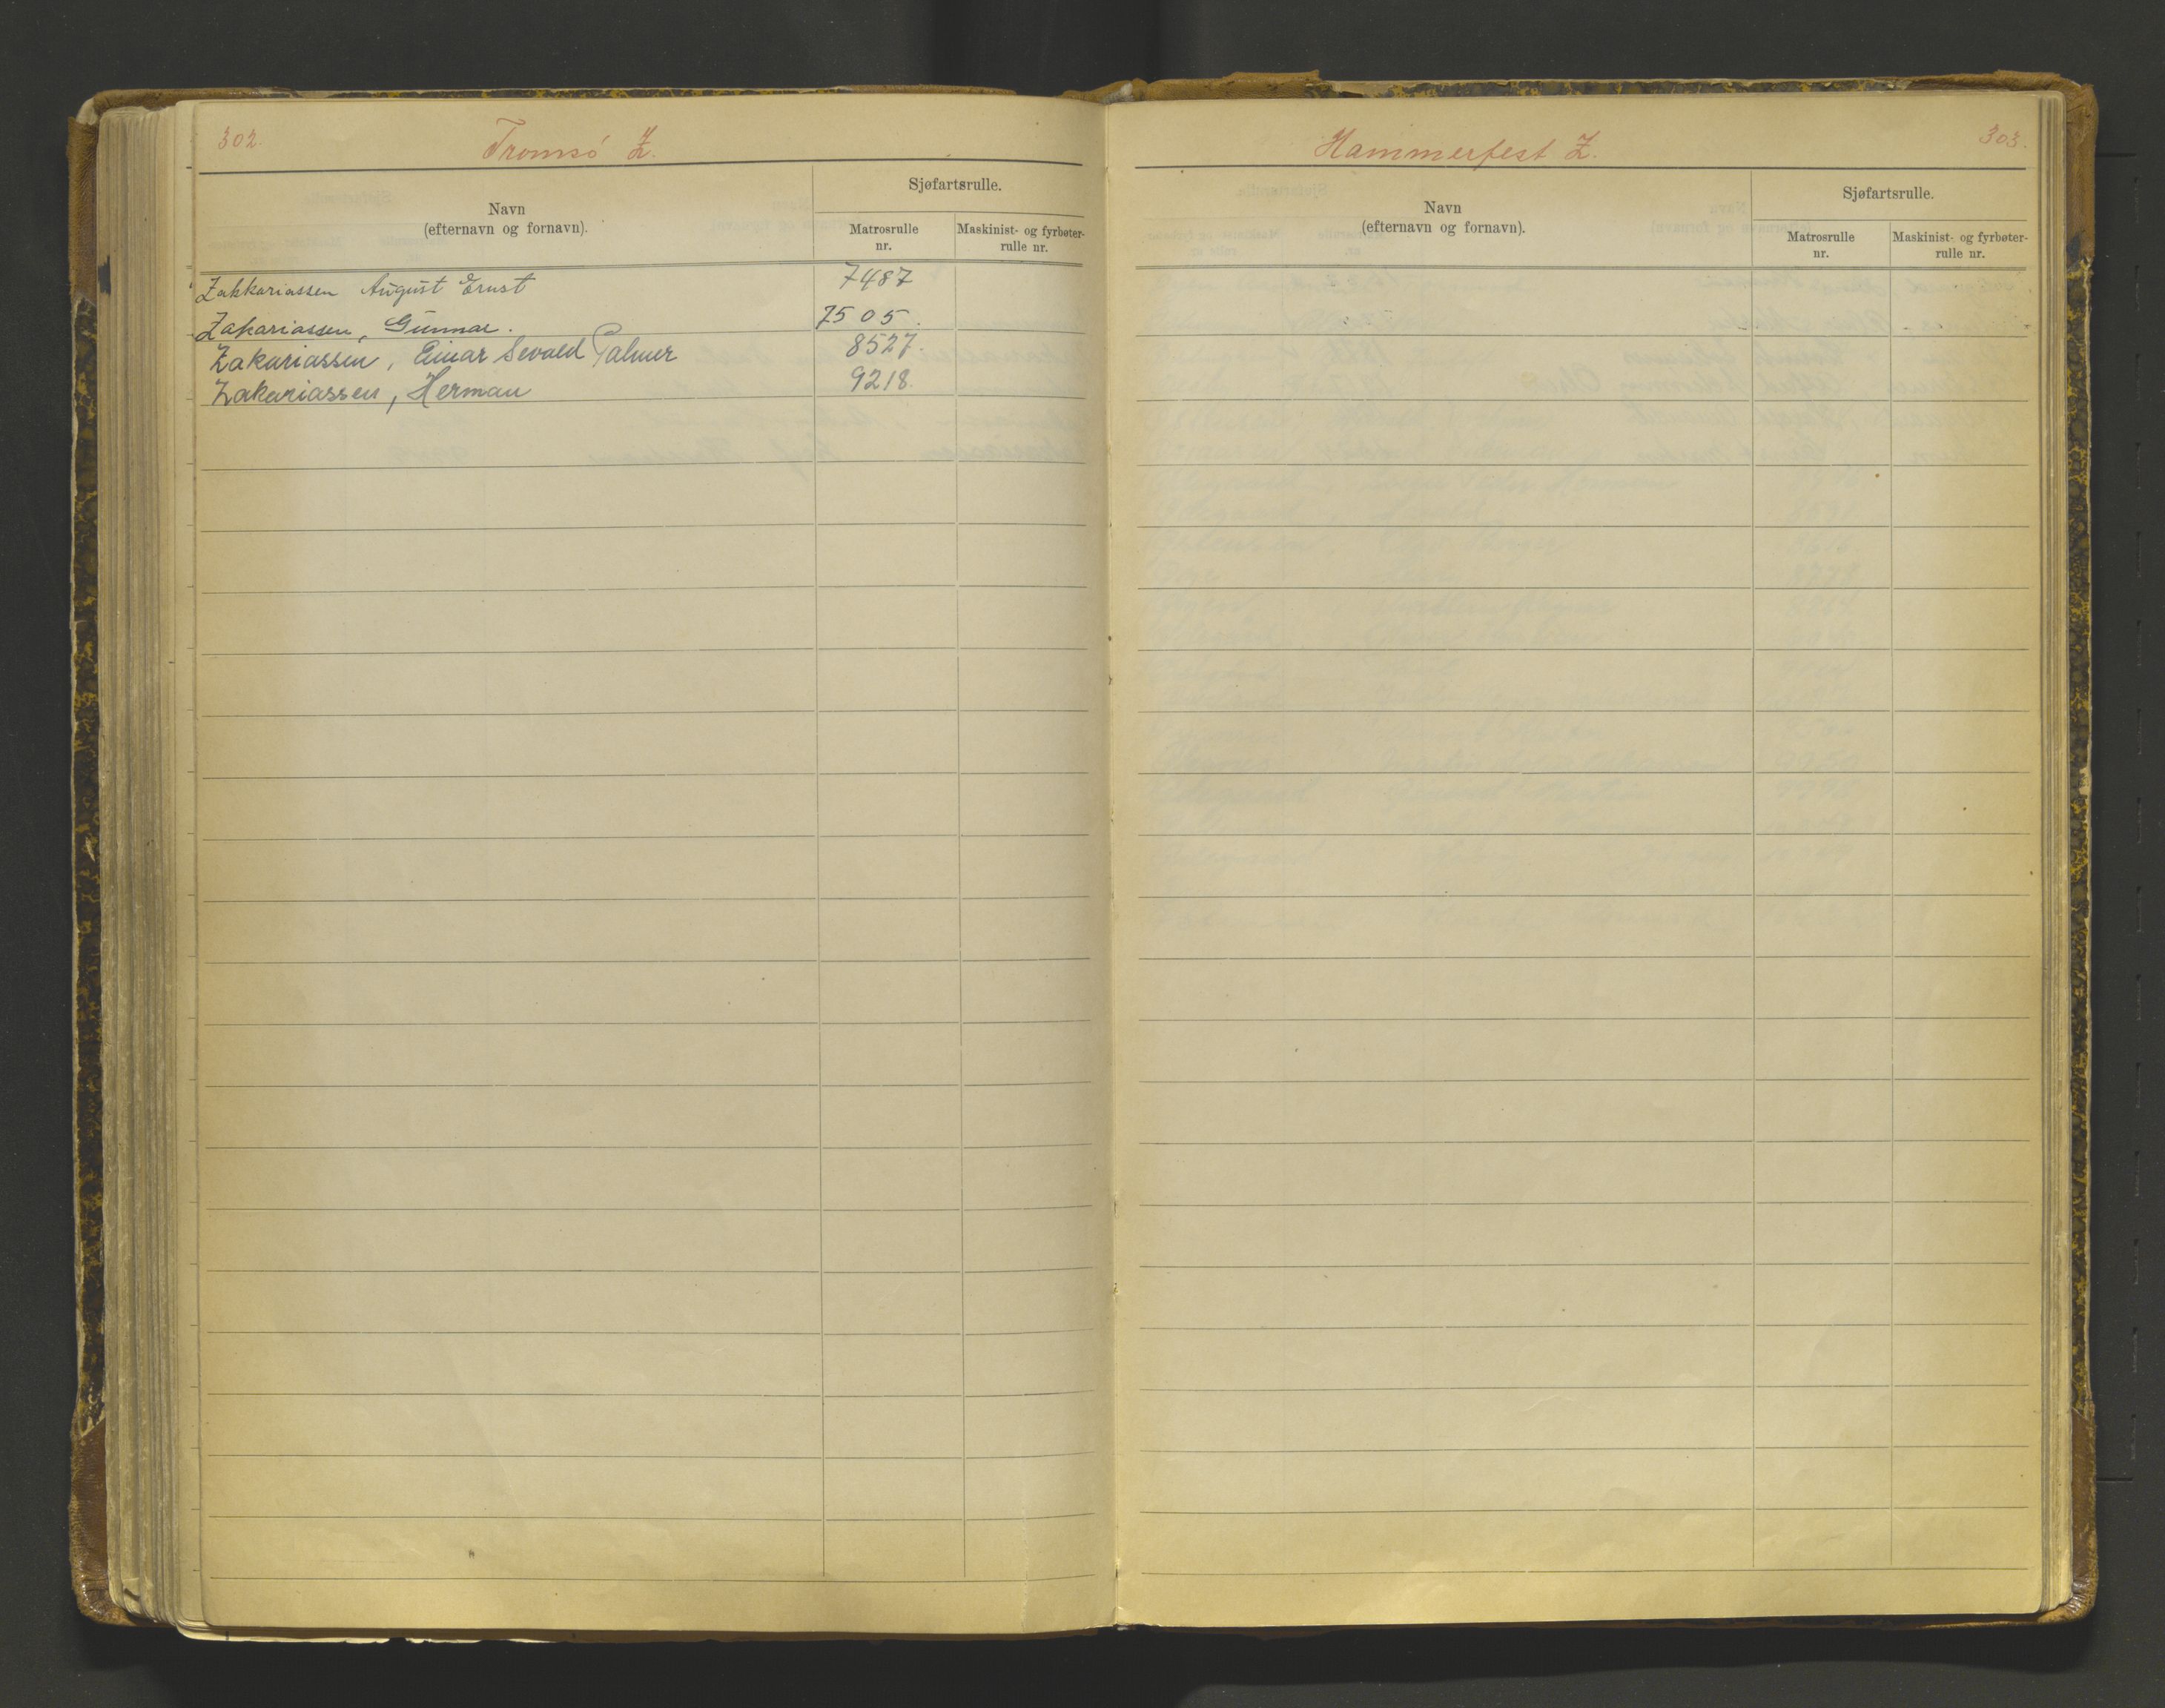 302.
Tromsó Z.
Navn
(efternavn og fornavn).
Sjøfartsrulle.
Matrosrulle
nr.
Maskinist- og fyrbøter-
rulle nr.
Zakkariassen August Ernst 7487
Zakariassen, Gunnar. 7505.
Zakariassen, Einar Sevald Palmer 8527.
Zakariassen, Herman 9218.
Hammerfest Z.
303.
Navn
(efternavn og fornavn).
Sjøfartsrulle.
Matrosrulle
nr.
Maskinist- og fyrbøter-
rulle nr.